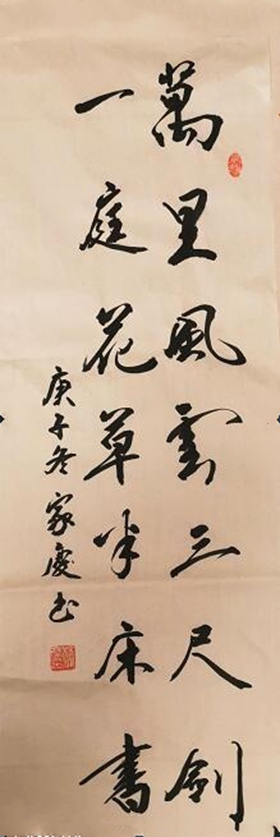 萬里風雲三尺劍
一庭花草半床書
庚子冬家慶书